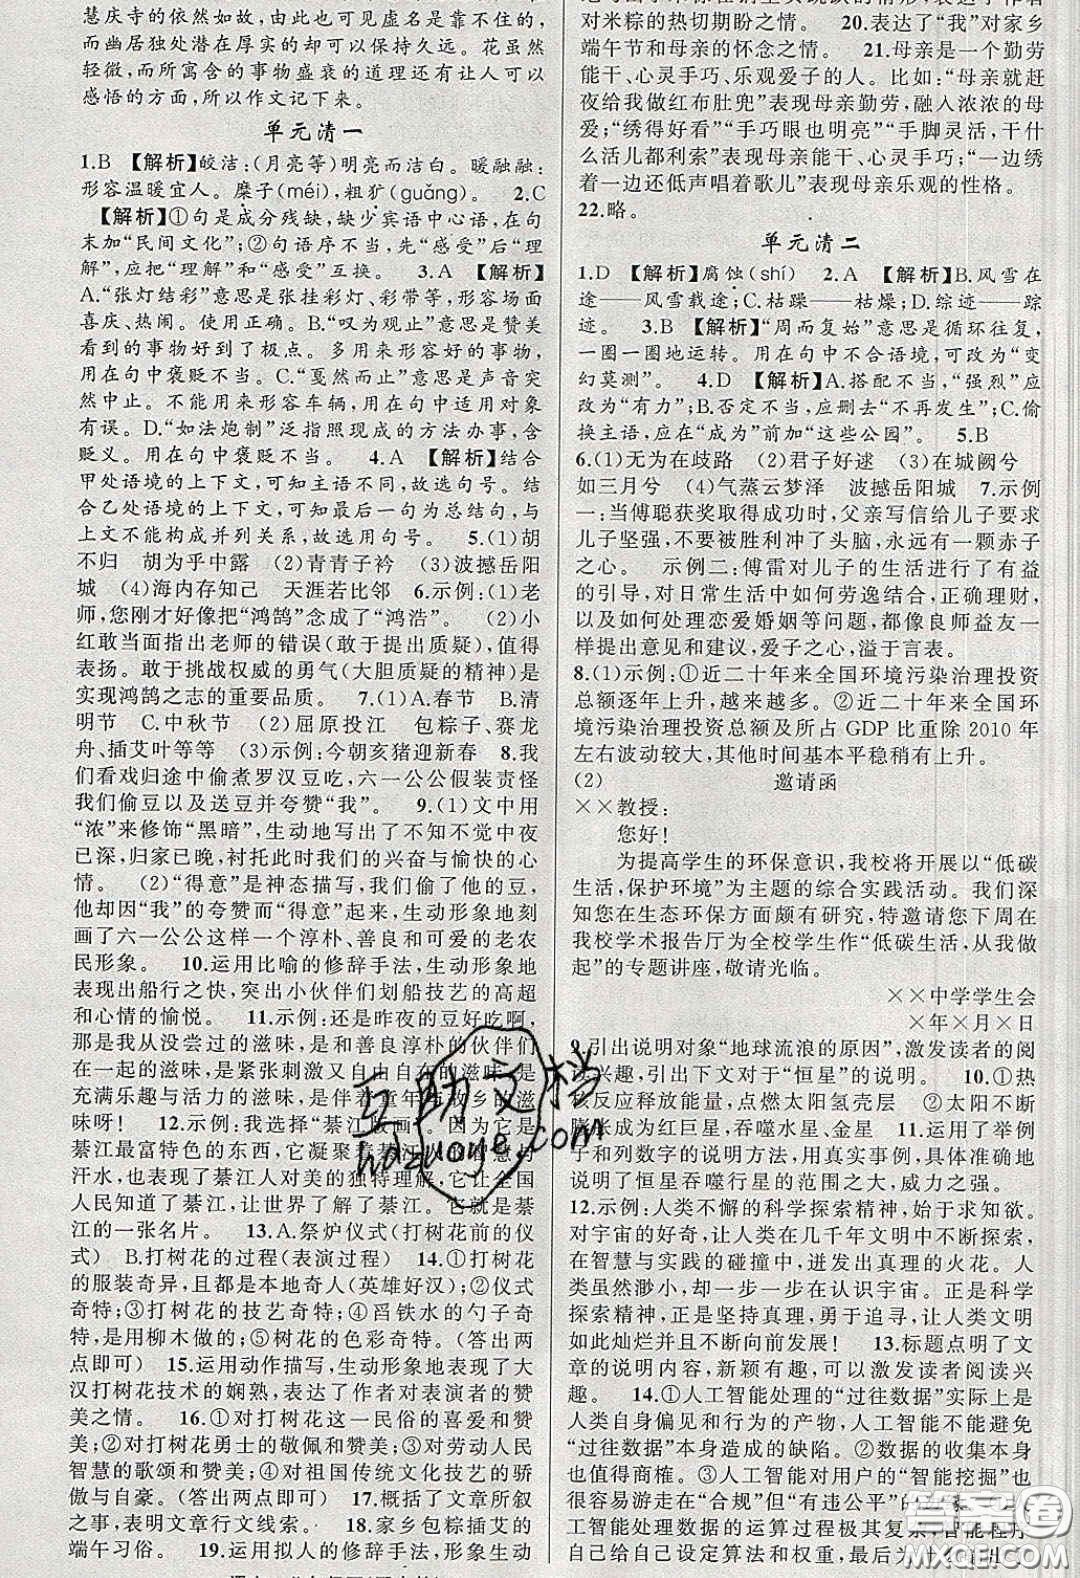 慧庆寺的依然如故,由此可见虚名是靠不住的,
而幽居独处潜在厚实的却可以保持久远。花虽然
轻微,而所寓含的事物盛衰的道理还有让人可以
感悟的方面,所以作文记下来。
单元清一
1.B 【解析】皎洁:(月亮等)明亮而洁白。暖融融:
形容温暖宜人。糜子(méi),粗犷(guǎng)。 2.C
【解析】①句是成分残缺,缺少宾语中心语,在句
末加“民间文化”;②句语序不当,先“感受”后“理
解”,应把“理解”和“感受”互换。 3.A 【解析】
A.“张灯结彩”意思是张挂彩灯、彩带等,形容场面
喜庆、热闹。使用正确。B.“叹为观止”意思是赞美
看到的事物好到了极点。多用来形容好的事物,
用在句中褒贬不当。C.“戛然而止”意思是声音突
然中止。用来形容车辆,用在句中适用对象
有误。D.“如法炮制”泛指照现成的方法办事,含
贬义。用在句中褒贬不当。 4.A 【解析】结合
甲处语境的上下文,可知主语不同,故选句号。结
合乙处语境的上下文,可知最后一句为总结句,与
上文不能构成并列关系,故选用句号。 5.(1)胡
不归 胡为乎中露 (2)青青子衿 (3)波撼岳阳
城 (4)海内存知己 天涯若比邻 6.示例:(1)老
师,您刚才好像把“鸿鹄”念成了“鸿浩”。 (2)小
红敢当面指出老师的错误(敢于提出质疑),值得
表扬。敢于挑战权威的勇气(大胆质疑的精神)是
实现鸿鹄之志的重要品质。 7.(1)A.春节 B.清
明节 C.中秋节 (2)屈原投江 包粽子、赛龙
舟、插艾叶等等 (3)示例:今朝亥猪迎新春 8.我
们看戏归途中偷煮罗汉豆吃,六一公公假装责怪
我们偷豆以及送豆并夸赞“我”。 9.(1)文中用
“浓”来修饰“黑暗”,生动地写出了不知不觉中夜
已深,归家已晚,衬托此时我们的兴奋与愉快的心
情。 (2)“得意”是神态描写,我们偷了他的豆,
他却因“我”的夸赞而“得意”起来,生动形象地刻
画了六一公公这样一个淳朴、善良和可爱的老农
民形象。 10.运用比喻的修辞手法,生动形象地
表现出船行之快,突出小伙伴们划船技艺的高超
和心情的愉悦。 11.示例:还是昨夜的豆好吃啊,
那是我从没尝过的滋味,是和善良淳朴的伙伴们
在一起的滋味,是紧张刺激又自由自在的滋味,是
充满乐趣与活力的滋味,是伴着童年与故乡的滋
味呀! 12.示例:我选择“綦江版画”。因为它是
綦江最富特色的东西,它凝聚着綦江人的智慧与
汗水,也表现了綦江人对美的独特理解,它让全国
人民知道了綦江,让世界了解了綦江。它就是綦
江的一张名片。 13.A.祭炉仪式(打树花前的仪
式) B.打树花的过程(表演过程) 14.①打树花
的服装奇异,且都是本地奇人(英雄好汉);②仪式
奇特;③打树花的技艺奇特;④舀铁水的勺子奇
特,是用柳木做的;⑤树花的色彩奇特。(答出两
点即可) 15.运用动作描写,生动形象地表现了大
汉打树花技术的娴熟,表达了作者对表演者的赞
美之情。 16.①对打树花这一民俗的喜爱和赞
美;②对打树花勇士的敬佩和赞美;③对劳动人民
智慧的歌颂和赞美;④对祖国传统文化技艺的骄
傲与自豪。(答出两点即可) 17.概括了文章所叙
之事,表明文章行文线索。 18.家乡包粽插艾的
端午习俗。 19.运用拟人的修辞手法,形象生动
对米粽的热切期盼之情。 20.表达了“我”对家乡
端午节和母亲的怀念之情。 21.母亲是一个勤劳
能干、心灵手巧、乐观爱子的人。比如:“母亲就赶
夜给我做红布肚兜”表现母亲勤劳,融入浓浓的母
爱;“绣得好看”“手巧眼也明亮”“手脚灵活,干什
么活儿都利索”表现母亲能干、心灵手巧;“一边绣
着一边还低声唱着歌儿”表现母亲乐观的性格。
22.略。
单元清二
1.D 【解析】腐蚀(shí) 2.A 【解析】B.风雪在
途——风雪载途;C.枯躁——枯燥;D.综迹——踪
迹。 3.B 【解析】“周而复始”意思是循环往复,
一圈一圈地运转。用在句中不合语境,可改为“变
幻莫测”。 4.D 【解析】A.搭配不当,“强烈”应
改为“有力”;B.否定不当,应删去“不再发生”;C.偷
换主语,应在“成为”前加“这些公园”。 5.B
6.(1)无为在歧路 (2)君子好逑 (3)在城阙兮
如三月兮 (4)气蒸云梦泽 波撼岳阳城 7.示例
一:当傅聪获奖取得成功时,父亲写信给儿子要求
儿子坚强,不要被胜利冲了头脑,永远有一颗赤子
之心。 示例二:傅雷对儿子的生活进行了有益
的引导,对日常生活中如何劳逸结合,正确理财,
以及如何处理恋爱婚姻等问题,都像良师益友一
样提出意见和建议,爱子之心,溢于言表。
8.(1)示例:①近二十年来全国环境污染治理投资
总额逐年上升,越来越多。②近二十年来全国环
境污染治理投资总额及所占 GDP 比重除 2010 年
左右波动较大,其他时间基本平稳稍有上升。
(2) 邀请函
××教授:
您好!
为提高学生的环保意识,我校将开展以“低碳
生活,保护环境”为主题的综合实践活动。我们深
知您在生态环保方面颇有研究,特邀请您下周在
我校学术报告厅为全校学生作“低碳生活,从我做
起”的专题讲座,敬请光临。
××中学学生会
×年×月×日
9.引出说明对象“地球流浪的原因”,激发读者的阅
读兴趣,引出下文对于“恒星”的说明。 10.①热
核反应释放能量,点燃太阳氢壳层 ②太阳不断
膨胀成为红巨星,吞噬水星、金星 11.运用了举例
子和列数字的说明方法,用真实事例,具体准确地
说明了恒星吞噬行星的范围之大,威力之强。
12.示例:人类不懈的科学探索精神,始于求知欲。
对宇宙的好奇,让人类在几千年文明中不断探索,
在智慧与实践的碰撞中,迸发出真理的火花。人
类虽然渺小,却一步一步在认识宇宙。正是科学
探索精神,正是坚持真理,勇于探索,让人类文明
如此灿烂并且不断向前发展! 13.标题点明了文
章的说明内容,新颖有趣,可以激发读者阅读兴
趣。 14.①人工智能处理的“过往数据”实际上是
人类自身偏见和行为的产物,人工智能不能避免
“过往数据”本身造成的缺陷。②数据的收集本身
也值得商榷。③人工智能对用户的“智能挖掘”也
很容易游走在“合规”但“有违公平”的
工智能处理数据的运算过程极其复杂,智能程序
自己给自己设定算法和权重,最后为什么得出
互助文档
huzuoye.com
答案圈
MXQE.COM